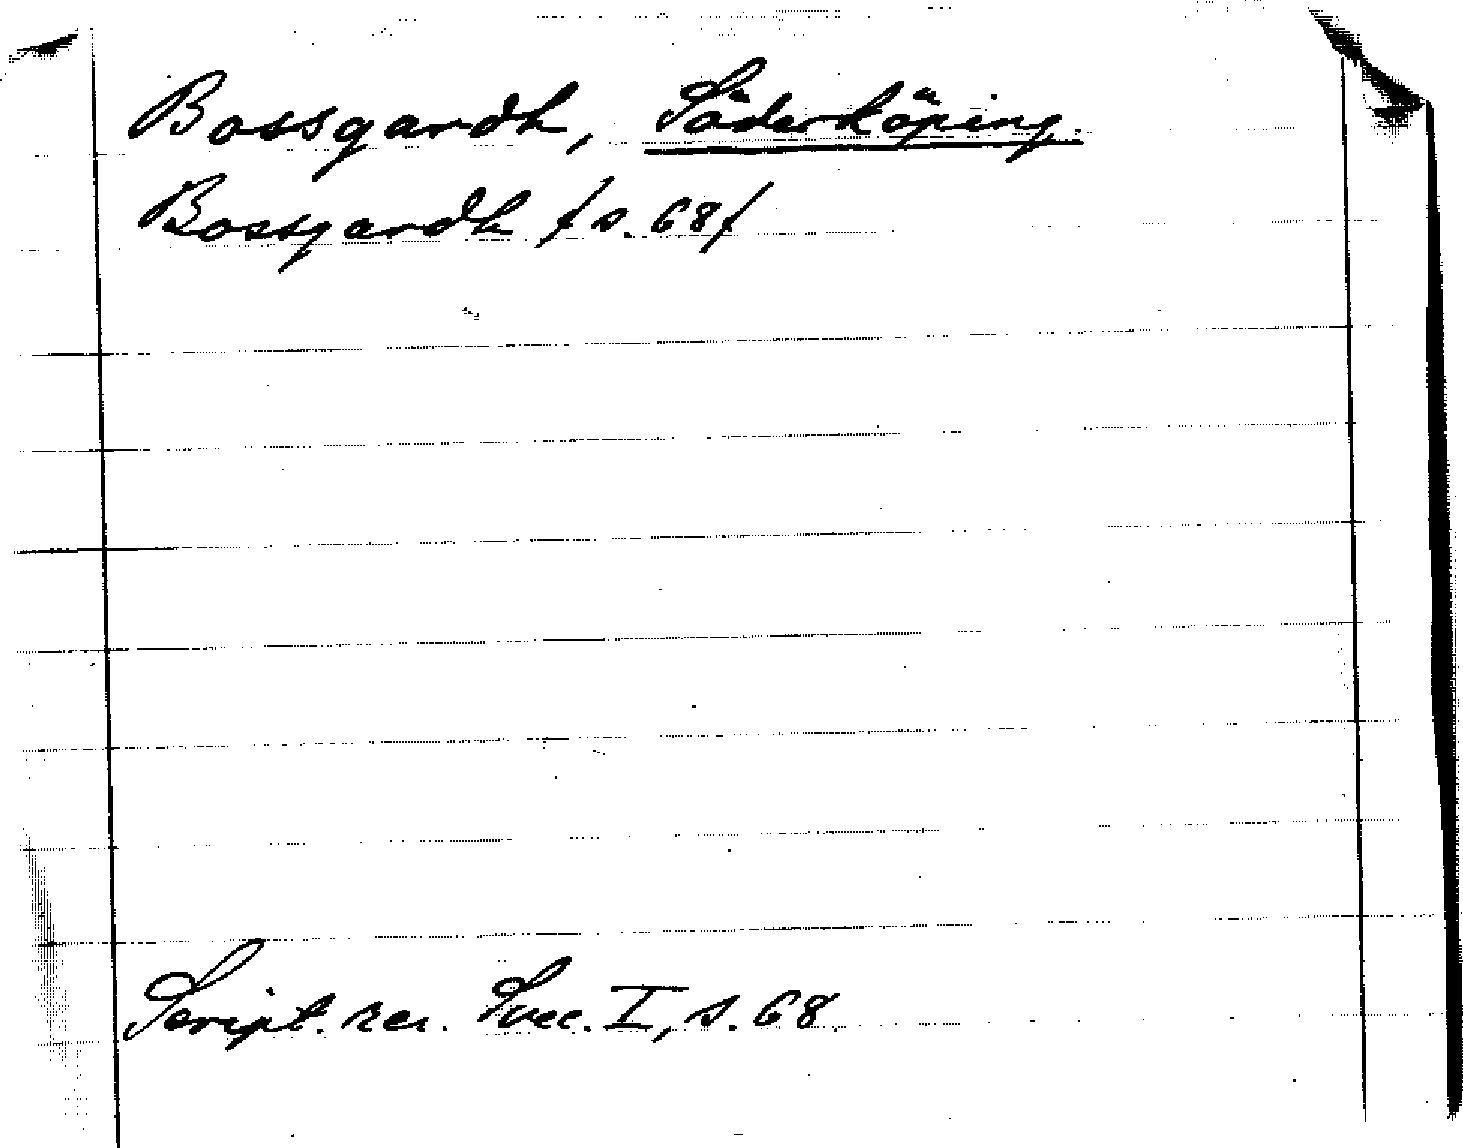 Bossgardh, Söderköping.
Bossgardh /s. 68/
Script. rer. Svec. I, s. 68.